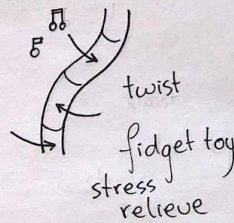 twist
fidget toy
stress
relieve